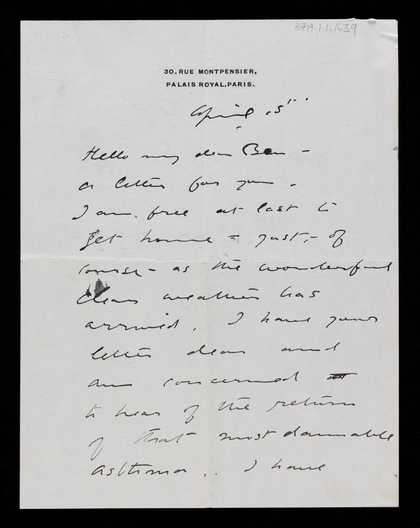 30, RUE MONTPENSIER,
PALAIS ROYAL, PARIS.
April 15th
Hello my dear Ben -
a letter for you.
I am free at last to
get home - just - of
course - as the wonderful
clear weather has
arrived. I have your
letter dear and
am concerned
to hear of the return
of that most damnable
asthma .. I have